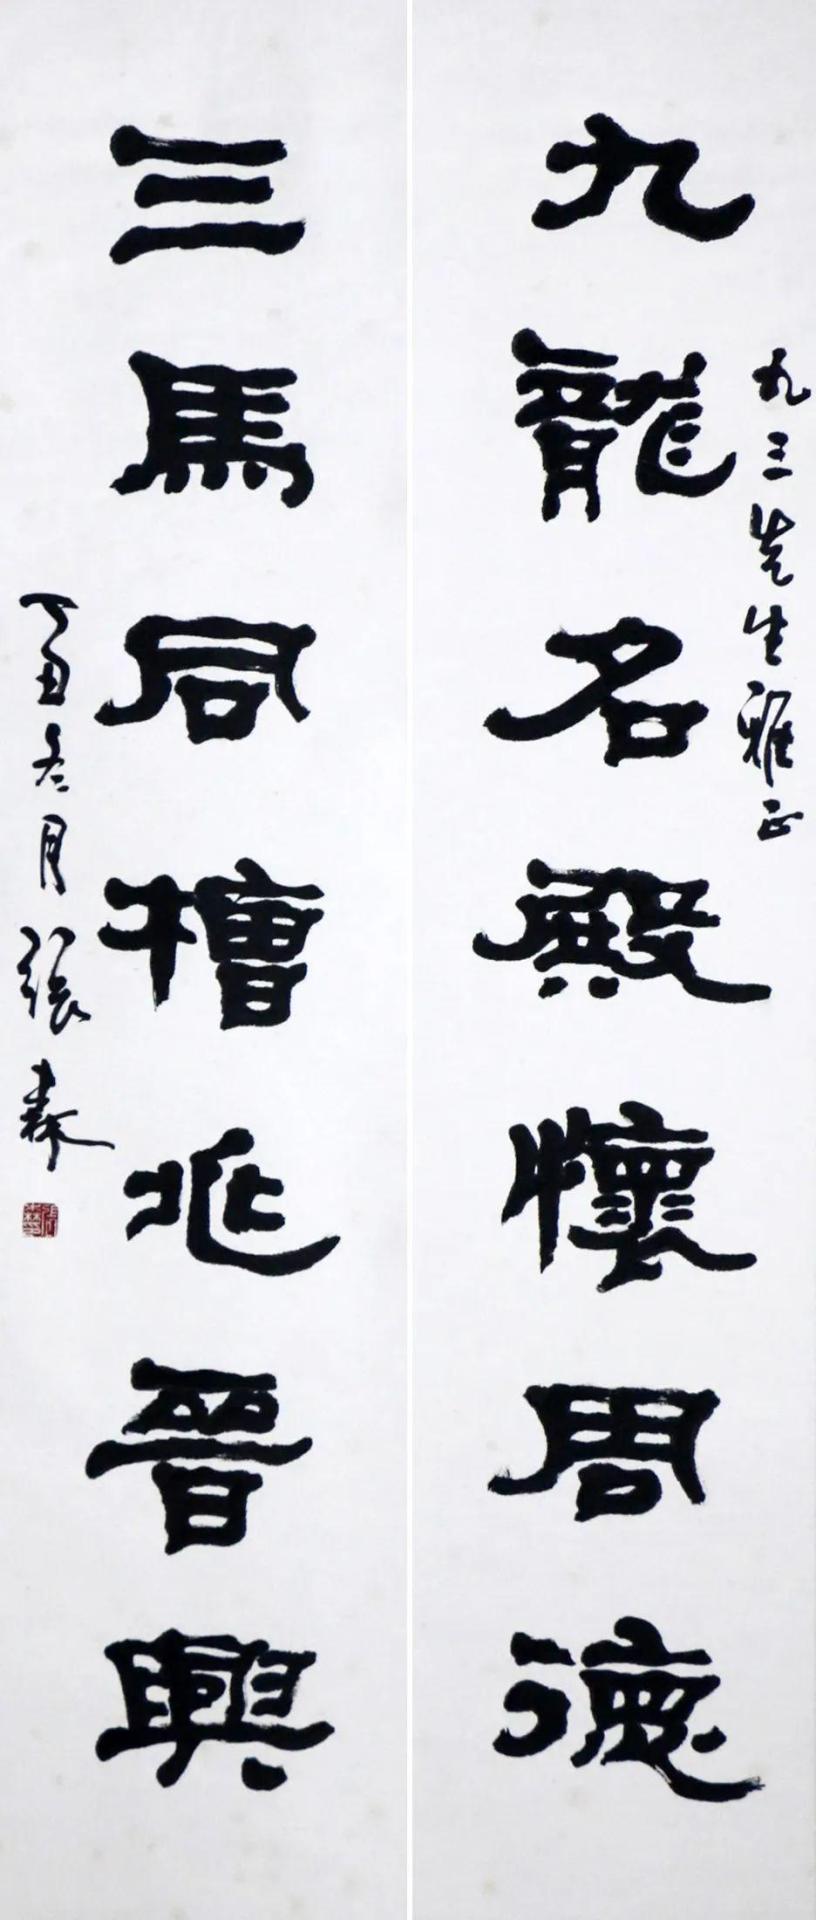 九三先生雅正
九龍名殿懷周德
三馬同槽兆晉興
丁丑冬月張森